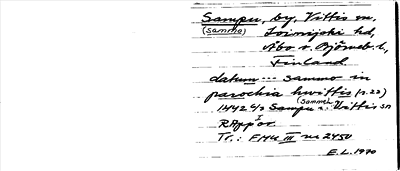 Sampu, by, Vittis sn,
(sammo) Loimijoki hd,
Åbo o. Björneb. l.,
Finland
datum --- sammo in
parochia hwittis (s. 23)
1442 4/2 Sampu (sammel) i Vittis sn
RApp or.
Tr.: FMU III nr 2450
E.L. 1970